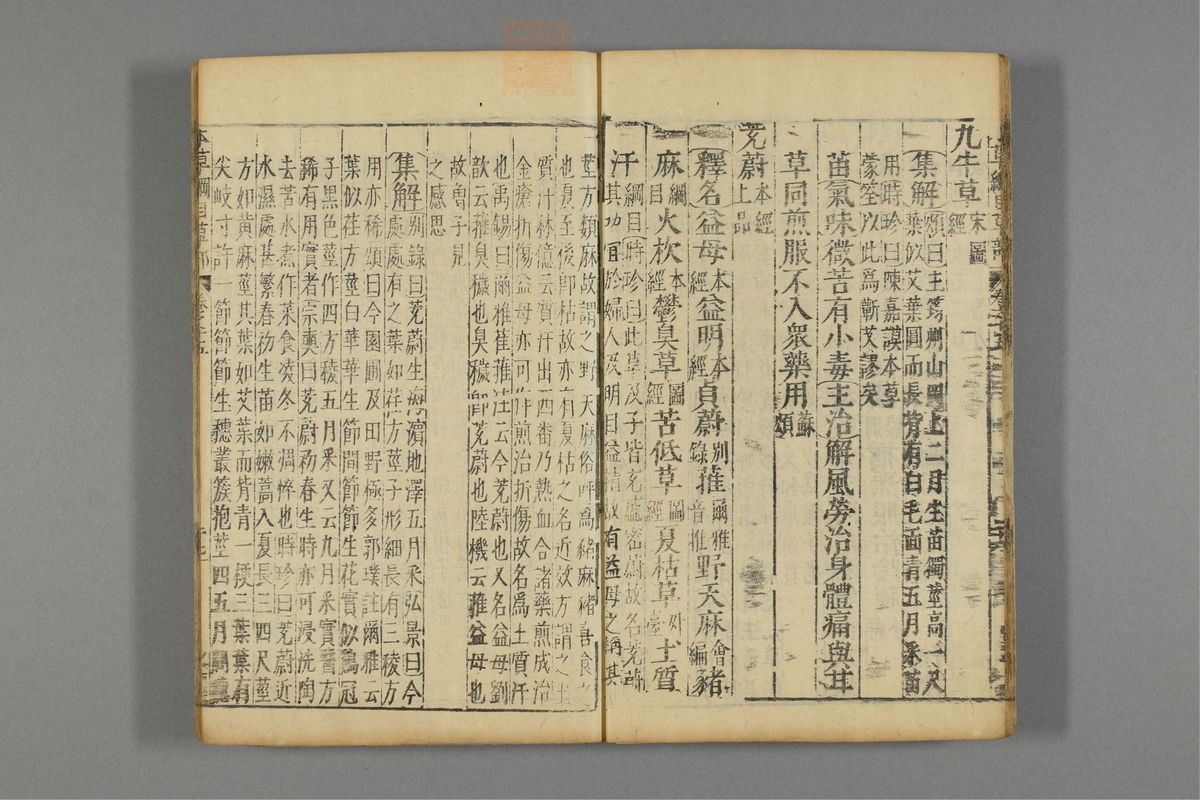 九牛草宋圖經
集解頌曰生筠州山岡上二月生苗獨莖高一尺
葉似艾葉圓而長背有白毛面青五月采苗
用時珍曰陳嘉謨本草
蒙筌以此爲蘄艾謬矣
苗氣味微苦有小毒主治解風勞治身體痛與甘
草同煎服不入衆藥用蘇頌
茺蔚本經上品
釋名益母本經益明本經貞蔚別錄蓷爾雅音推野天麻會編豬
麻綱目火杴本經鬱臭草圖經苦低草圖經夏枯草外臺土質
汗綱目時珍曰此草及子皆充盛密蔚故名茺蔚
其功宜於婦人及明目益精故有益母之稱其
莖方類麻故謂之野天麻俗呼爲豬麻豬喜食之
也夏至後卽枯故亦有夏枯之名近效方謂之土
質汗林億云質汗出西番乃熱血合諸藥煎成治
金瘡折傷益母亦可作煎治折傷故名爲土質汗
也禹錫曰爾雅萑蓷注云今茺蔚也又名益母劉
歆云蓷臭穢也臭穢卽茺蔚也陸機云蓷益母也
故曾子見
之感思
集解別錄曰茺蔚生海濱池澤五月采弘景曰今
處處有之葉如荏方莖子形細長有三稜方
用亦稀頌曰今園圃及田野極多郭璞註爾雅云
葉似荏方莖白華華生節間節節生花實似雞冠
子黑色莖作四方稜五月采又云九月采實醫方
稀有用實者宗奭曰茺蔚初春生時亦可浸洗陶
去苦水煮作菜食凌冬不凋悴也時珍曰茺蔚近
水濕處甚繁春初生苗如嫩蒿入夏長三四尺莖
方如黃麻莖其葉如艾葉而背青一梗三葉葉有
尖岐寸許一節節節生穗叢簇抱莖四五月